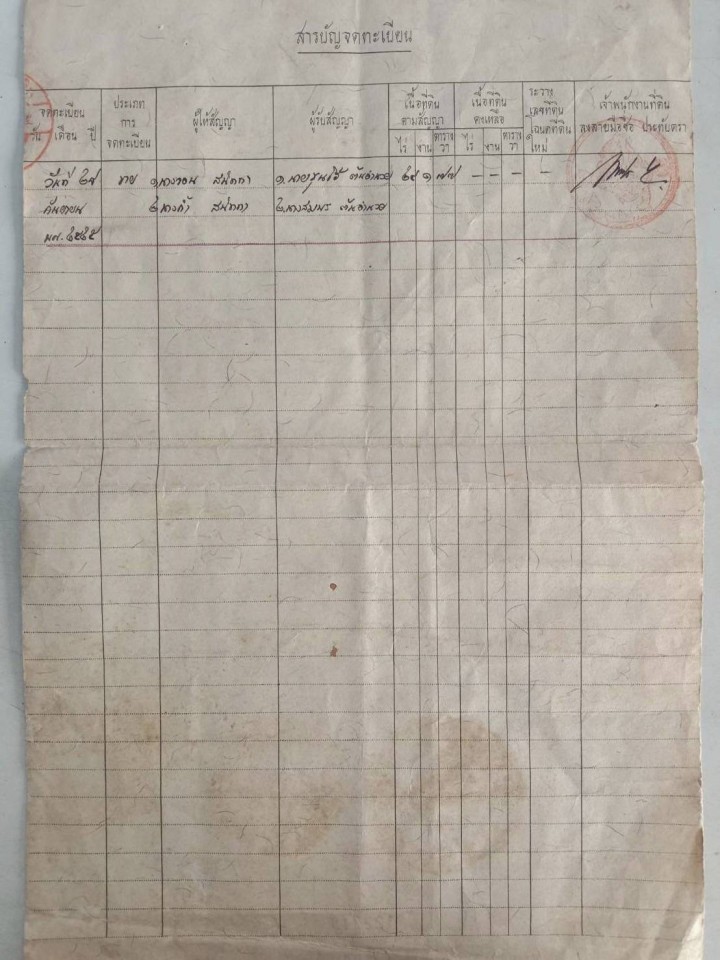 สารบัญจดทะเบียน
จดทะเบียน
วัน เดือน ปี
ประเภท
การ
จดทะเบียน
ผู้ให้สัญญา
ผู้รับสัญญา
เนื้อที่ดิน
ตามสัญญา
ไร่ งาน ตารางวา
เนื้อที่ดิน
คงเหลือ
ไร่ งาน ตารางวา
ระวาง
เลขที่ดิน
โฉนดที่ดิน
ใหม่
เจ้าพนักงานที่ดิน
ลงลายมือชื่อ ประทับตรา
วันที่ ๒๗ ขาย ๑.นาง ๑.นาย ๒๕ ๑ ๗๗ - - - -
กันยายน ๒.นางคำ ๒.นางสมพร
พ.ศ. ๒๕๒๕